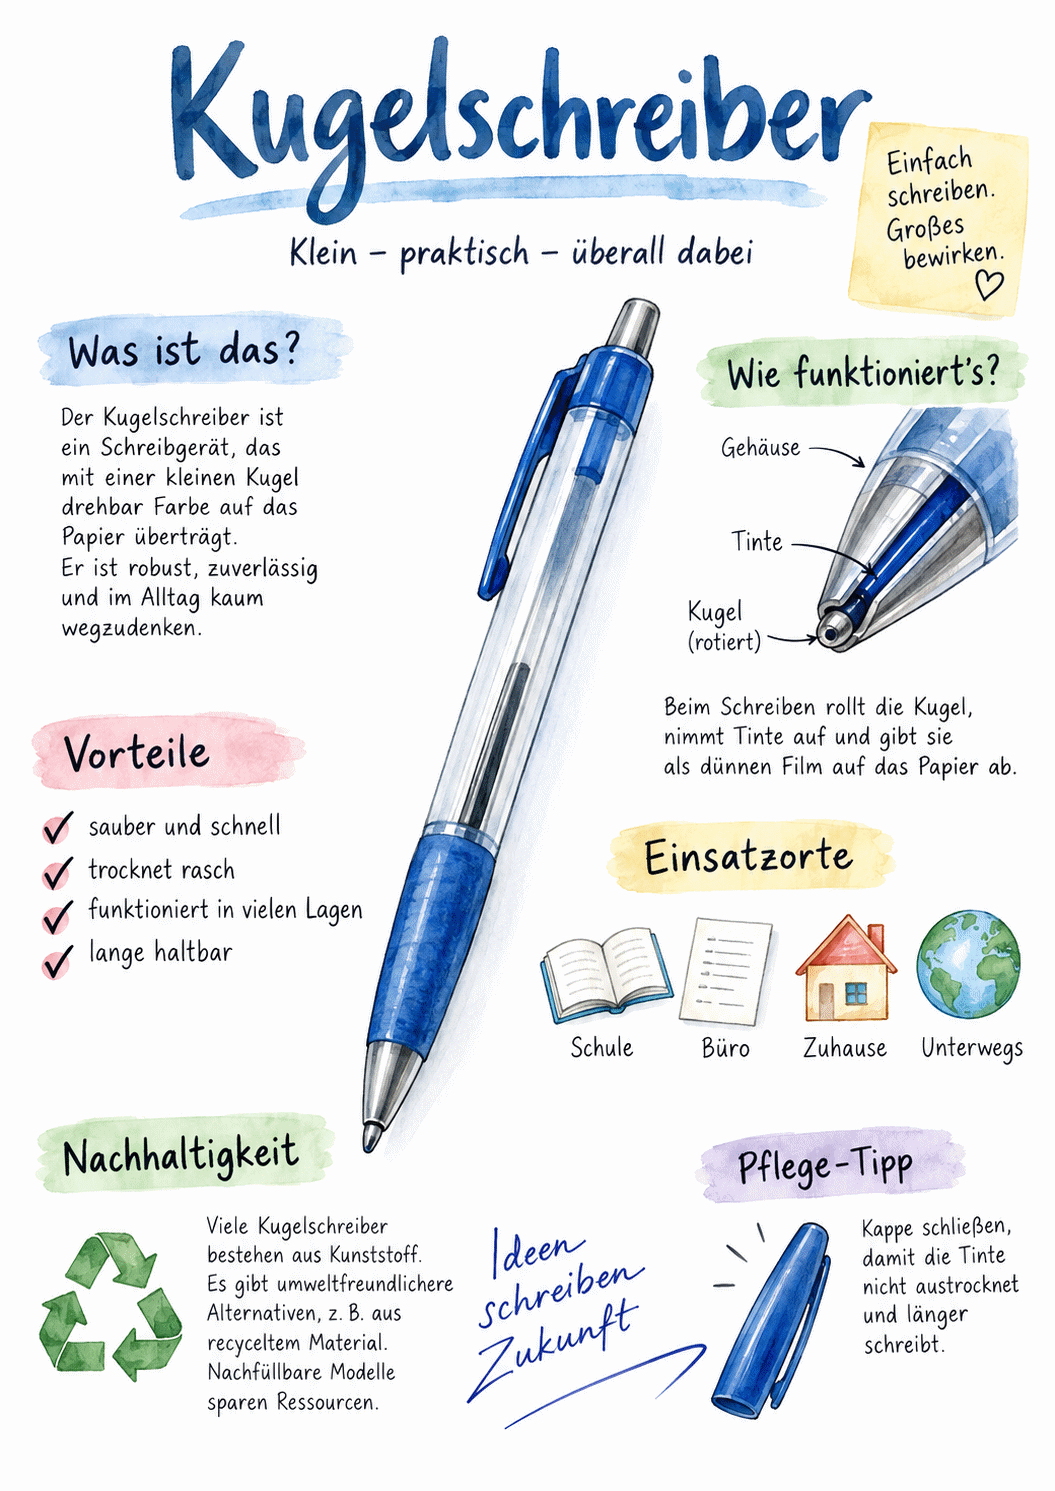 Kugelschreiber
Klein – praktisch – überall dabei
Einfach
schreiben.
Großes
bewirken.
Was ist das?
Der Kugelschreiber ist
ein Schreibgerät, das
mit einer kleinen Kugel
drehbar Farbe auf das
Papier überträgt.
Er ist robust, zuverlässig
und im Alltag kaum
wegzudenken.
Wie funktioniert's?
Gehäuse
Tinte
Kugel
(rotiert)
Beim Schreiben rollt die Kugel,
nimmt Tinte auf und gibt sie
als dünnen Film auf das Papier ab.
Vorteile
sauber und schnell
trocknet rasch
funktioniert in vielen Lagen
lange haltbar
Einsatzorte
Schule
Büro
Zuhause
Unterwegs
Nachhaltigkeit
Viele Kugelschreiber
bestehen aus Kunststoff.
Es gibt umweltfreundlichere
Alternativen, z. B. aus
recyceltem Material.
Nachfüllbare Modelle
sparen Ressourcen.
Ideen
schreiben
Zukunft
Pflege-Tipp
Kappe schließen,
damit die Tinte
nicht austrocknet
und länger
schreibt.